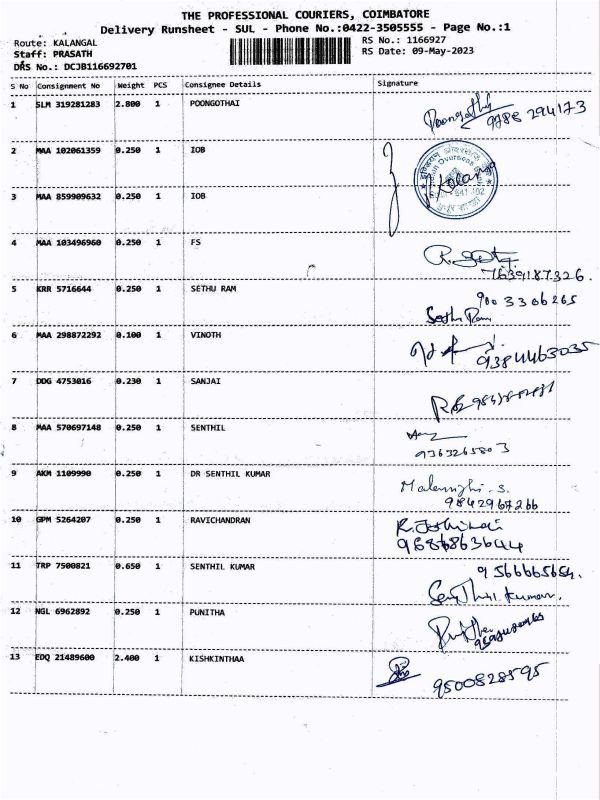 THE PROFESSIONAL COURIERS, COIMBATORE
Delivery Runsheet - SUL - Phone No.:0422-3505555 - Page No.:1
Route: KALANGAL RS No.: 1166927
Staff: PRASATH RS Date: 09-May-2023
DRS No.: DCJB116692701
S No Consignment No Weight PCS Consignee Details Signature
1 SLM 319281283 2.800 1 POONGOTHAI Poongothai 9788 294173
2 MAA 102061359 0.250 1 IOB
3 MAA 859909632 0.250 1 IOB
4 MAA 103496960 0.250 1 FS
7639187326.
5 KRR 5716644 0.250 1 SETHU RAM 900 3306265
Sethu Ram
6 MAA 298872292 0.100 1 VINOTH
9384463035
7 DDG 4753016 0.230 1 SANJAI
8 MAA 570697148 0.250 1 SENTHIL
9 AKM 1109990 0.250 1 DR SENTHIL KUMAR
9842967266
10 GPM 5264207 0.250 1 RAVICHANDRAN
9686863644
11 TRP 7500821 0.650 1 SENTHIL KUMAR 9566665654.
Senthil kumar.
12 NGL 6962892 0.250 1 PUNITHA
13 EDQ 21489600 2.400 1 KISHKINTHAA
9500828595